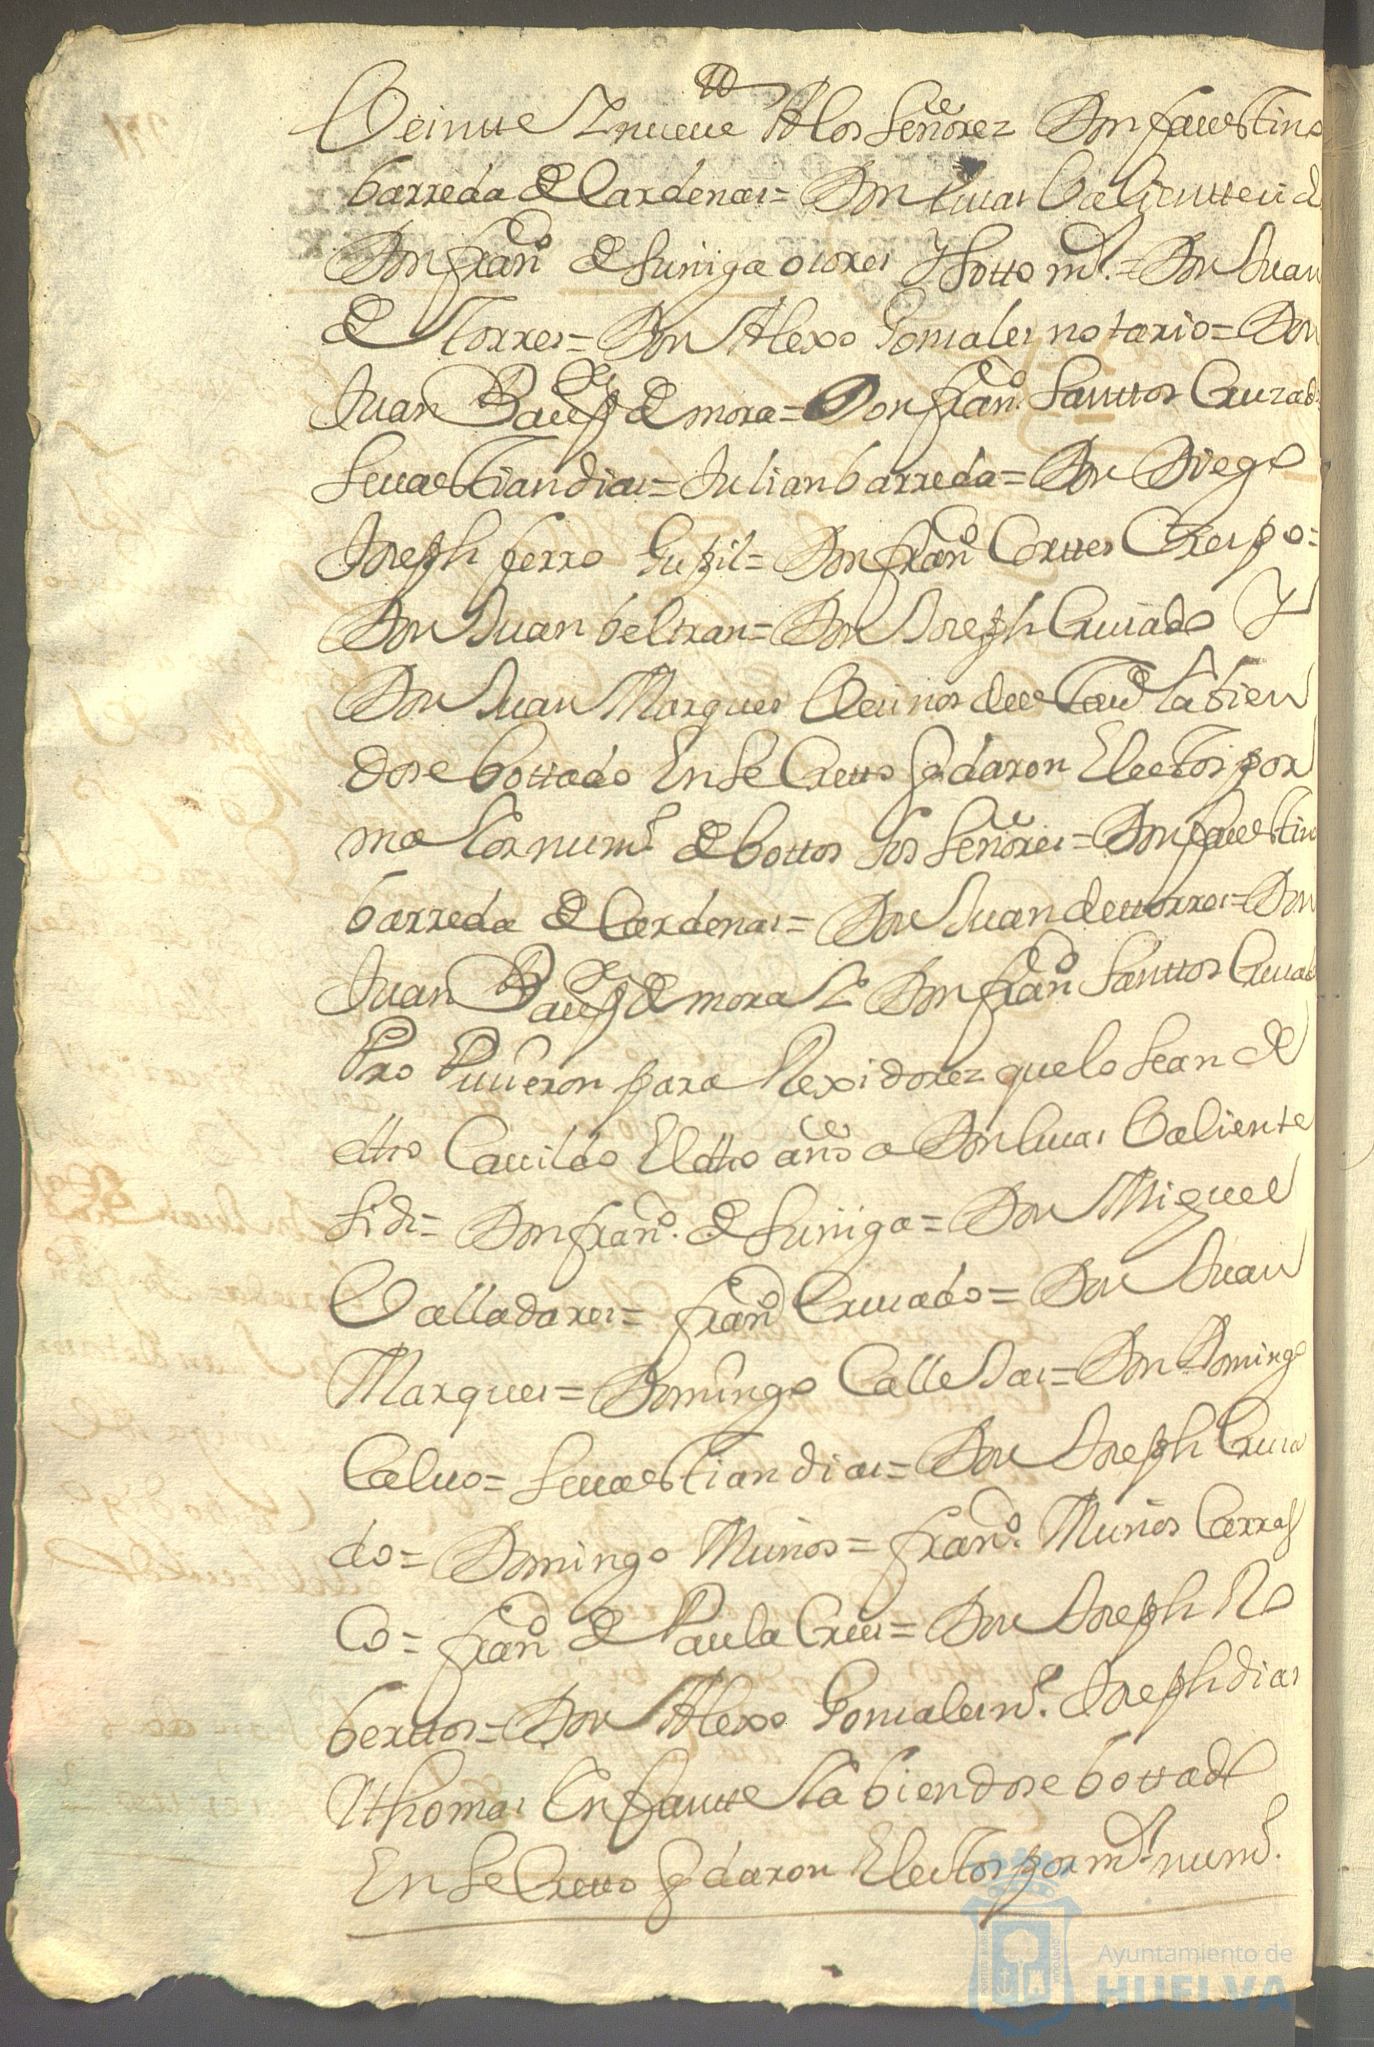 Veintte Y nueve A los Señorez Don faustino
barreda de Cardenas = Don lucas Valientte
Don franco de suniga ozores Y sottomr. = Don Juan
de Torres = Don Alexo Gonzales notario = Don
Juan Bauptta de mora = Don franco. Santtos Cruzado
Sevastian dias = Julian barreda = Don Diego
Joseph ferro = Don franco Corttes Crespo =
Don Juan beltran = Don Joseph Cruzado Y
Don Juan Marques Vecinos de esta va Yabien
dose bottado En SeCretto qdaron Electos por
maYor numo de bottos los Señores = Don faustino
barreda de Cardenas = Don Juan de ttorres = Don
Juan Bauptta de mora Yo Don franco Santtos Cruzado
ProPuuieron para Rexidorez que lo sean de
dho Cavildo El dho año a Don lucas Valiente
Don franco. de suniga = Don Miguel
Valladares = franco Cruzado = Don Juan
Marques = Domingo CalleJas = Don Domingo
Calvo = Sevastian dias = Don Joseph Cruza
do = Domingo Muños = franco. Muños Carras
Co = franco de Paula Cruz = Don Joseph Ro
berttos = Don Alexo Gonzales no. Joseph dias
Ythomas Ynfantte Yabiendose bottado
En SeCretto qdaron Electos por mr. numo.
Ayuntamiento de
HUELVA